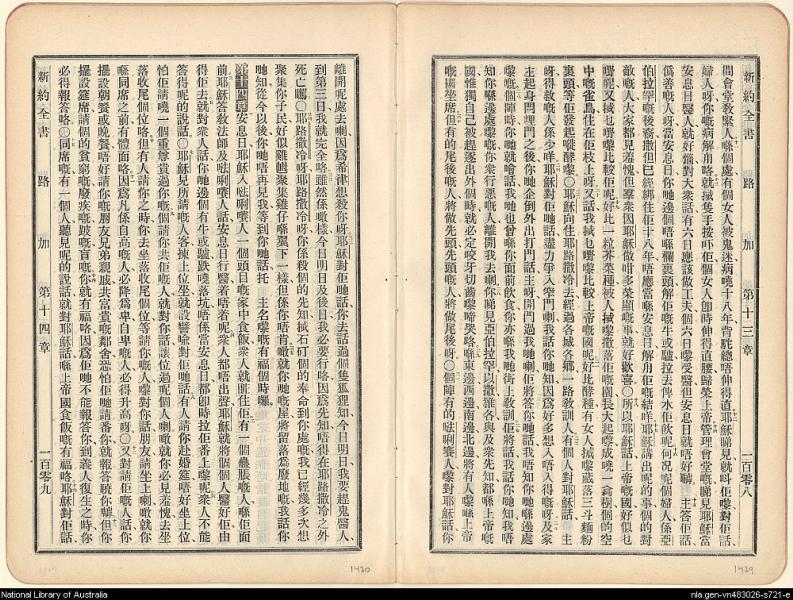 新約全書
路加
第十三章
一百零八
間會堂教緊人喺個處有個女人被鬼迷病嘵十八年背駝總唔伸得直耶穌睇見就呌佢嚟對佢話
婦人呀你嘅病解甩咯就揻隻手按吓佢個女人卽時伸得直腰歸榮上帝管理會堂嘅睇見耶穌當
安息日醫人就好㷫對大衆話有六日應該做工夫個六日嚟受醫但安息日就唔好囉主答佢話
僞善嘅人呀當安息日你哋邊個唔喺欄裏頭解佢嘅牛或驢拉去俾水佢飲呢何况呢個婦人係亞
伯拉罕嘅後裔撒但已經綁住佢十八年唔應當喺安息日解甩佢嘅結咩耶穌講出呢的事個的對
敵嘅人大家都見羞愧但羣衆因耶穌做咁多榮顯嘅事就好歡喜〇所以耶穌話上帝嘅國好似乜
嘢呢又揻乜嘢嚟比較佢呢好比一粒芥菜種被人揻嚟撒落佢嘅園長大起嚟成嘵一喬樹個的空
中嘅雀鳥住在佢枝上呀又話我揻乜嘢嚟比較上帝嘅國呢好比酵種有女人揻嚟藏落三斗麵粉
裏頭等佢發起嚟酵嚟〇耶穌向住耶路撒冷去經過各城各鄉一路教訓人有個人對耶穌話主
呀得救嘅人係少咩耶穌對佢哋話盡力爭入窄門喇我話你哋知因爲好多想入唔入得嘅呀及家
主起身閂埋門之後你哋企倒外出打門話主呀開門過我哋喇佢將答你哋話我唔知你哋喺邊處
嚟嘅個陣時你哋就會話我哋也曾喺你面前飲食你亦喺我哋街上教訓佢將話我話你哋知我唔
知你喺邊處嚟嘅你衆行惡嘅人離開我去喇你睇見亞伯拉罕以撒雅各與及衆先知都喺上帝嘅
國惟獨自己被趕逐出外個時就必定咬牙切齒嚟啼哭咯喺東邊西邊南邊北邊將有人嚟喺上帝
嘅國坐席但有的尾後嘅人將做先頭先頭嘅人將做尾後呀〇個陣有的𠵽唎嚽人嚟對耶穌話你
離開呢處去喇因爲希律想殺你呀耶穌對佢哋話你去話過個隻狐狸知今日明日我要趕鬼醫人
到第三日我就完全咯雖然係噉樣今日明日及後日我必要行咯因爲先知唔得在耶路撒冷之外
死亡嚹〇耶路撒冷呀耶路撒冷呀你係殺個的先知揻石矴個的奉命到你處嘅我已經幾多次想
聚集你子民好似雞乸聚集雞仔喺翼下一樣但係你唔肯噉就你哋嘅屋將留落爲廢地嘅我話你
哋知從今以後你哋唔再見我等到你哋話托主名嚟嘅有福個時嚹
第十四章安息日耶穌入𠵽唎嚽人一個頭目嘅家中食飯衆人就睄住佢有一個蠱脹嘅人喺佢面
前耶穌答教法師及𠵽唎嚽人話安息日行醫着唔着呢衆人都唔出聲耶穌就將個個人醫好佢由
得佢去就對衆人話你哋邊個有牛或驢跌嘵落坑唔係當安息日都卽時拉佢番上嚟呢衆人不能
答得呢的說話〇耶穌見所請嘅人客揀上位坐就設譬喻對佢哋話有人請你赴婚筵唔好坐上位
怕佢請嘵一個重尊貴過你嘅個請你共佢嘅人就對你話讓位過呢個人喇噉就你必見羞愧去坐
落收尾個位咯但有人請你之時你去坐落收尾個位等請你嘅人嚟對你話朋友請坐上喇噉就你
喺同席之前有體面咯因爲凡係自高嘅人必降爲卑自卑嘅人必得升高呀〇又對請佢嘅人話你
擺設朝餐或晚餐唔好請你嘅朋友兄弟親戚共富貴嘅鄰舍恐怕佢哋請番你就報答曉你嘑但你
擺設筵席請個的貧窮嘅廢疾嘅跛嘅盲嘅你就有福咯因爲佢哋不能報答你到義人復生之時你
必得報答咯〇同席嘅有一個人聽見呢的說話就對耶穌話喺上帝嘅國食飯嘅有福咯耶穌對佢話
新約全書
路加
第十四章
一百零九
1430
1429
National Library of Australia
nla.gen-vn483026-s721-e